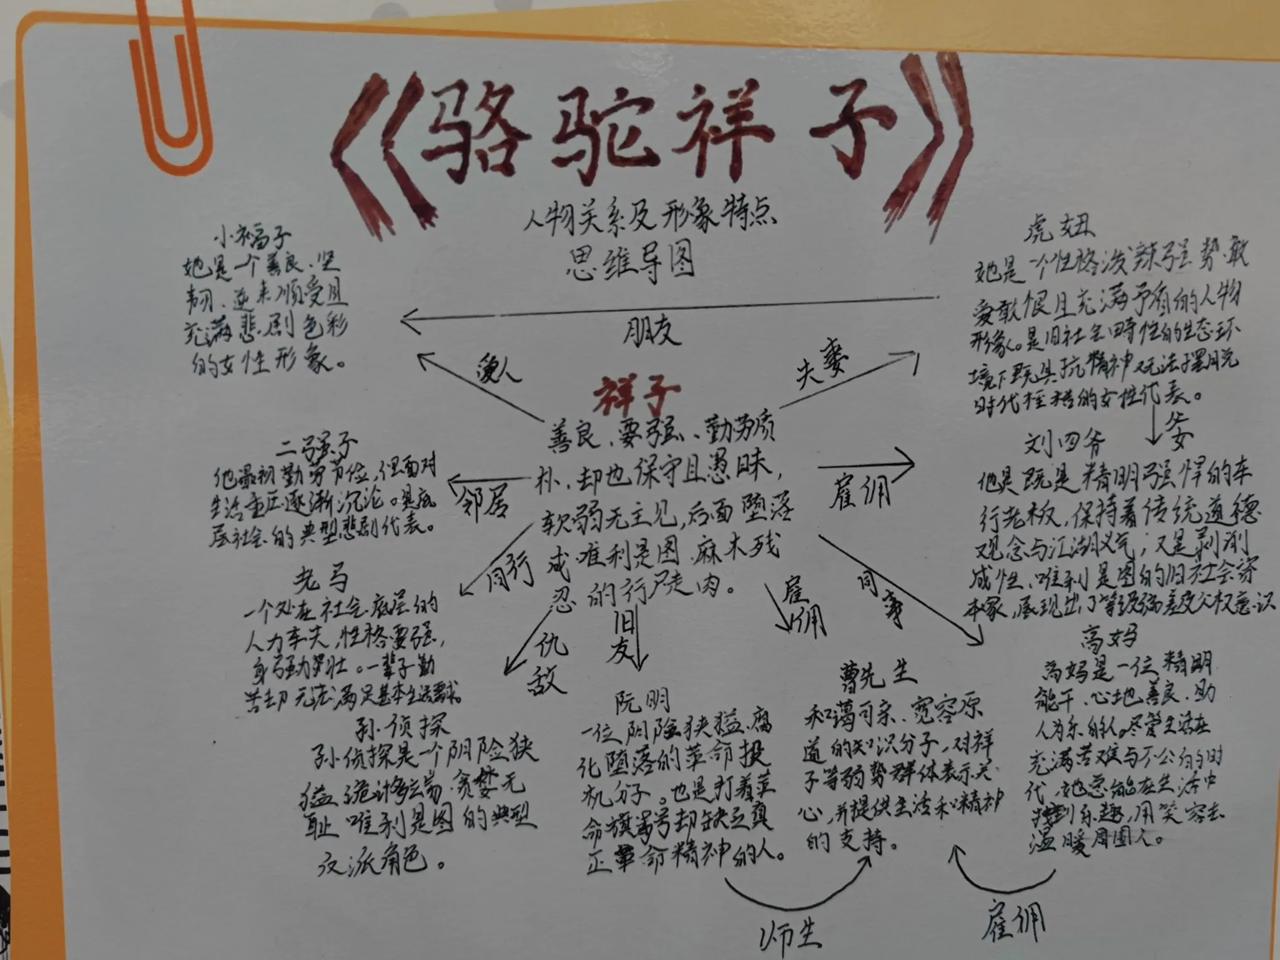 《骆驼祥子》
人物关系及形象特点
思维导图
小福子
她是一个善良、坚
韧、逆来顺受且
充满悲剧色彩
的女性形象。
虎妞
她是一个性格泼辣强势敢
爱敢恨且充满矛盾的人物
形象。是旧社会畸性的生态环
境下既具抗精神又无法摆脱
时代桎梏的女性代表。
朋友
爱人
夫妻
祥子
善良、要强、勤劳质
朴,却也保守且愚昧,
软弱无主见,后面堕落
成唯利是图、麻木残
忍的行尸走肉。
父女
二强子
他最初勤劳节俭,但面对
生活重压逐渐沉沦。是底
层社会的典型悲剧代表。
邻居
雇佣
刘四爷
他是既是精明强悍的车
行老板,保持着传统道德
观念与江湖义气;又是剥削
成性、唯利是图的旧社会资
本家,展现出了等级与父权意识
老马
一个处在社会底层的
人力车夫,性格要强,
身强力壮。一辈子勤
苦却无法满足基本生活需求
同行
仇敌
旧友
雇佣
同事
孙侦探
孙侦探是一个阴险狭
猾、诡计多端、贪婪无
耻、唯利是图的典型
反派角色。
阮明
一位阴险狭猛、腐
化堕落的革命投
机分子。也是打着革
命旗号却缺乏真
正革命精神的人。
曹先生
和蔼可亲、宽容厚
道的知识分子,对祥
子等弱势群体表示关
心,并提供生活和精神
的支持。
高妈
高妈是一位精明
能干、心地善良、助
人为乐的人。尽管生活在
充满苦难与不公的旧时
代,她总能在生活中
找到乐趣,用笑容去
温暖周围人。
师生
雇佣